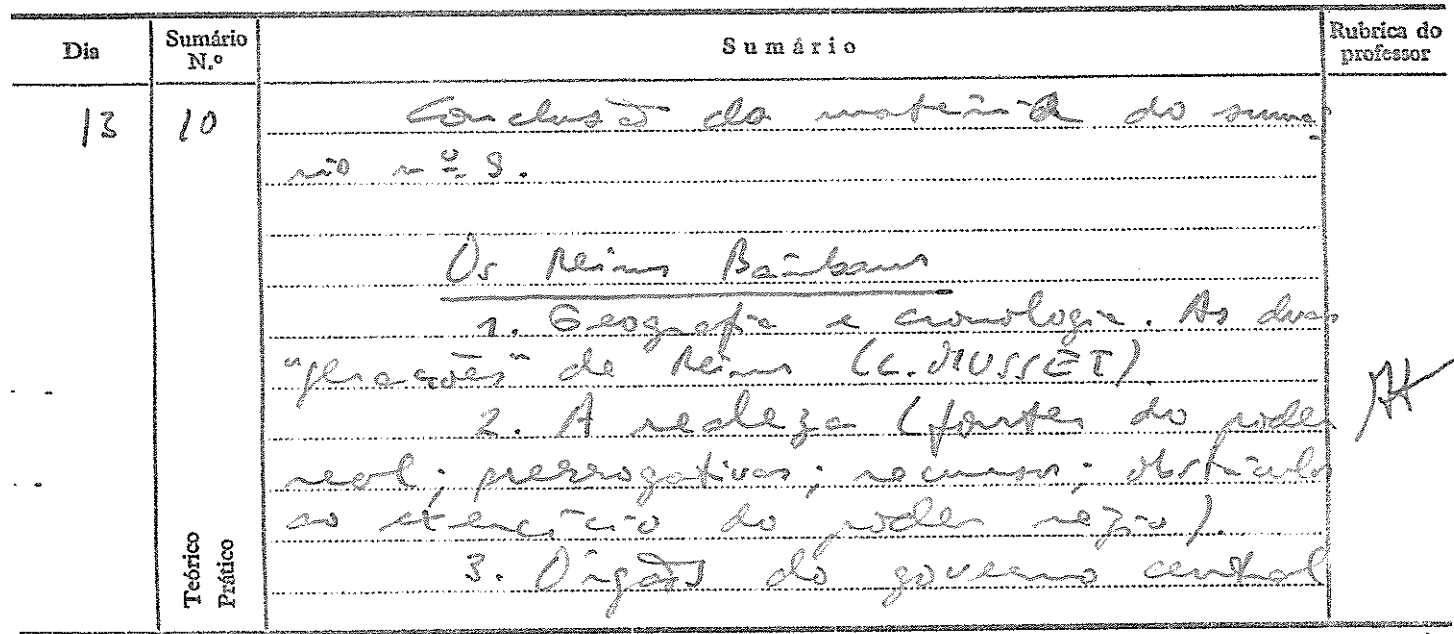 Dia Sumário N.º Sumário Rubrica do professor
13 10 Conclusão da matéria do sumá
rio nº 9.
Os Reinos Bárbaros
1. Geografia e cronologia. As duas
"gerações" de Reinos (L. MUSSET)
2. A realeza (fontes do poder
real; prerrogativas; recursos; obstáculos
ao exercício do poder régio).
3. Orgãos do governo central
Teórico
Prático